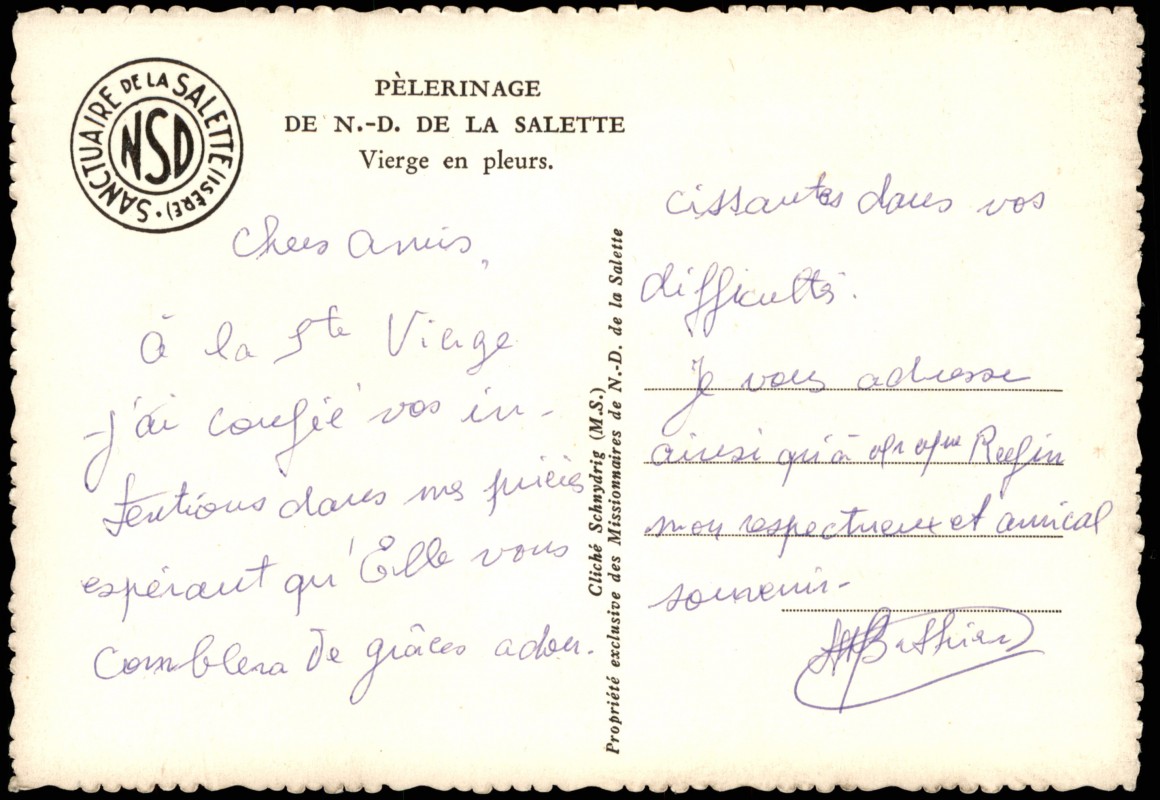 SANCTUAIRE DE LA SALETTE (ISÈRE) •
NSD
PÈLERINAGE
DE N.-D. DE LA SALETTE
Vierge en pleurs.
Chers amis,
à la Ste Vierge
j'ai confié vos in-
tentions dans mes prières
espérant qu'Elle vous
comblera de grâces adou-
cissantes dans vos
difficultés.
Je vous adresse
ainsi qu'à
mon respectueux et amical
souvenir-
Cliché Schnydrig (M.S.)
Propriété exclusive des Missionnaires de N.-D. de la Salette